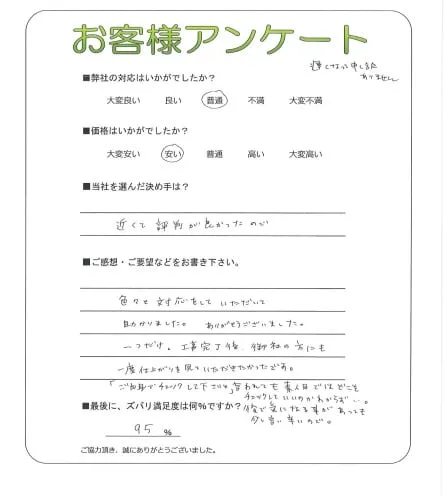 お客様アンケート
遅くなって申し訳
ありません
■弊社の対応はいかがでしたか？
大変良い 良い 普通 不満 大変不満
■価格はいかがでしたか？
大変安い 安い 普通 高い 大変高い
■当社を選んだ決め手は？
近くて評判が良かったので
■ご感想・ご要望などをお書き下さい。
色々と対応をしていただいて
助かりました。ありがとうございました。
一つだけ、工事完了後、御社の方にも
一度仕上がりを見ていただきたかったです。
「ご自身でチェックして下さい」と言われても素人目ではどこを
チェックしていいのかわからず…。
後で気になる事があっても
少し言い辛いので。
■最後に、ズバリ満足度は何%ですか？
95 %
ご協力頂き、誠にありがとうございました。